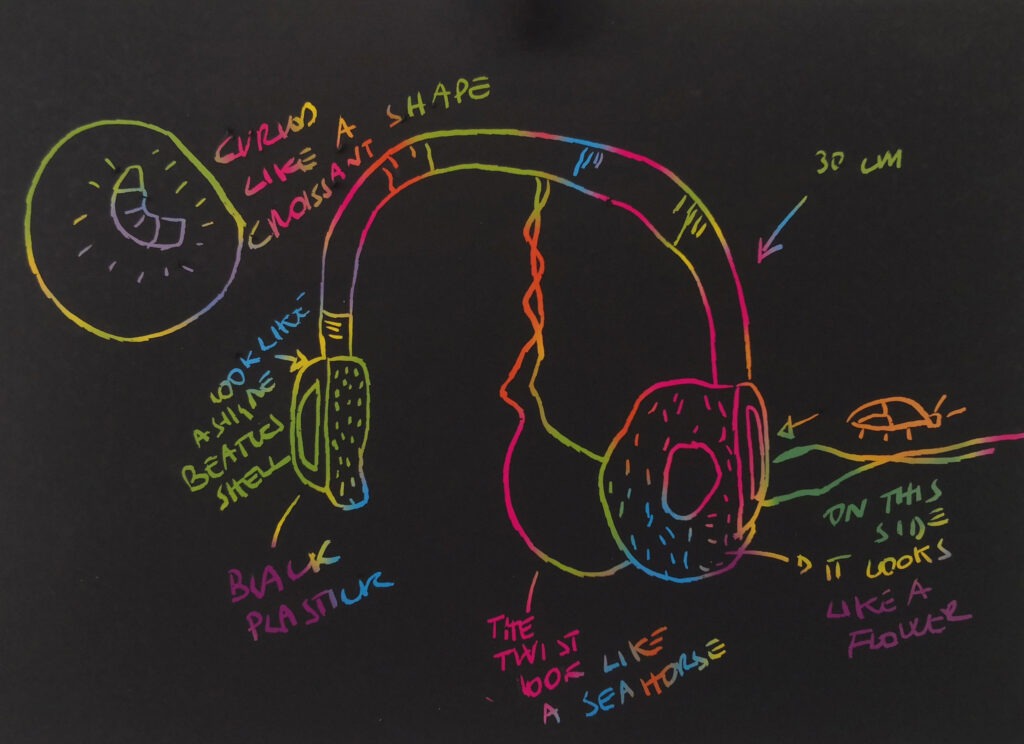 CURVOD
LIKE A SHAPE
CROISSANT
30 CM
LOOK LIKE
A SHINE
BEATUS
SHELL
BLACK
PLASTICK
THE
TWIST
LOOK LIKE
A SEAHORSE
ON THIS
SIDE
IT LOOKS
LIKE A
FLOWER